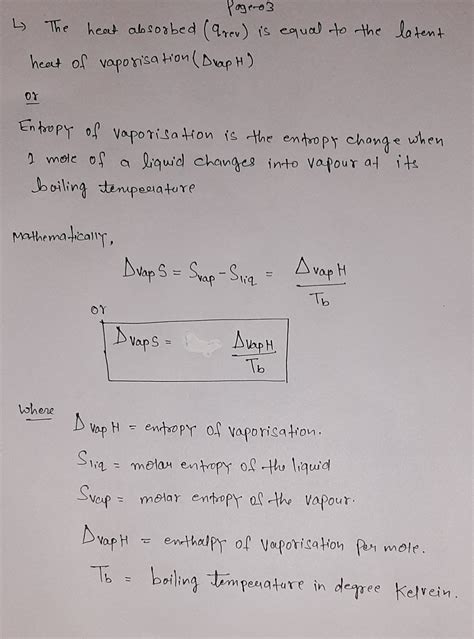 Page-03
↳ The heat absorbed (qrev) is equal to the latent
heat of vaporisation (ΔvapH)
or
Entropy of vaporisation is the entropy change when
1 mole of a liquid changes into vapour at its
boiling temperature
Mathematically,
ΔvapS = Svap - Sliq = ΔvapH / Tb
or
ΔvapS = ΔvapH / Tb
Where
ΔvapH = entropy of vaporisation.
Sliq = molar entropy of the liquid
Svap = molar entropy of the vapour.
ΔvapH = enthalpy of vaporisation per mole.
Tb = boiling temperature in degree Kelvein.